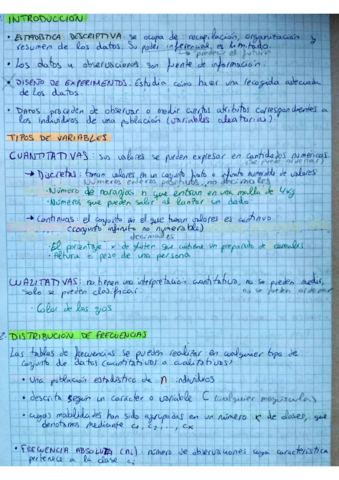 INTRODUCCIÓN
· ESTADÍSTICA DESCRIPTIVA se ocupa de recopilación, organización y
resumen de los datos. Su poder inferencial, es limitado.
predecir el futuro
· Los datos u observaciones son fuente de información.
· DISEÑO DE EXPERIMENTOS. Estudia como hacer una recogida adecuada
de los datos.
· DATOS proceden de observar o medir ciertos atributos correspondientes a
los individuos de una población (variables aleatorias).
TIPOS DE VARIABLES
CUANTITATIVAS: sus valores se pueden expresar en cantidades numéricas
se puede
→ DISCRETAS: toman valores en un conjunto finito o infinito numerable de valores
Números enteros positivos, no decimales
· Número de naranjas n que entran en una malla de 4kg
· Números que pueden salir al lanzar un dado
→ CONTINUAS: el conjunto en el que toman valores es continuo
(conjunto infinito no numerable)
decimales
· El porcentaje x de gluten que contiene un preparado de cereales
· Altura o peso de una persona
CUALITATIVAS: no tienen una interpretación cuantitativa, no se pueden medir,
solo se pueden clasificar
no se pueden ordenar
· Color de los ojos
2 DISTRIBUCIÓN DE FRECUENCIAS
Las tablas de frecuencias se pueden realizar en cualquier tipo de
conjunto de datos (cuantitativos o cualitativos)
· Una población estadística de n individuos
· descrita según un carácter o variable C cualquier mayúscula
· cuyas modalidades han sido agrupadas en un número k de clases, que
denotamos mediante c₁, c₂, ..., cₖ
· FRECUENCIA ABSOLUTA : número de observaciones cuya característica
pertenece a la clase cᵢ